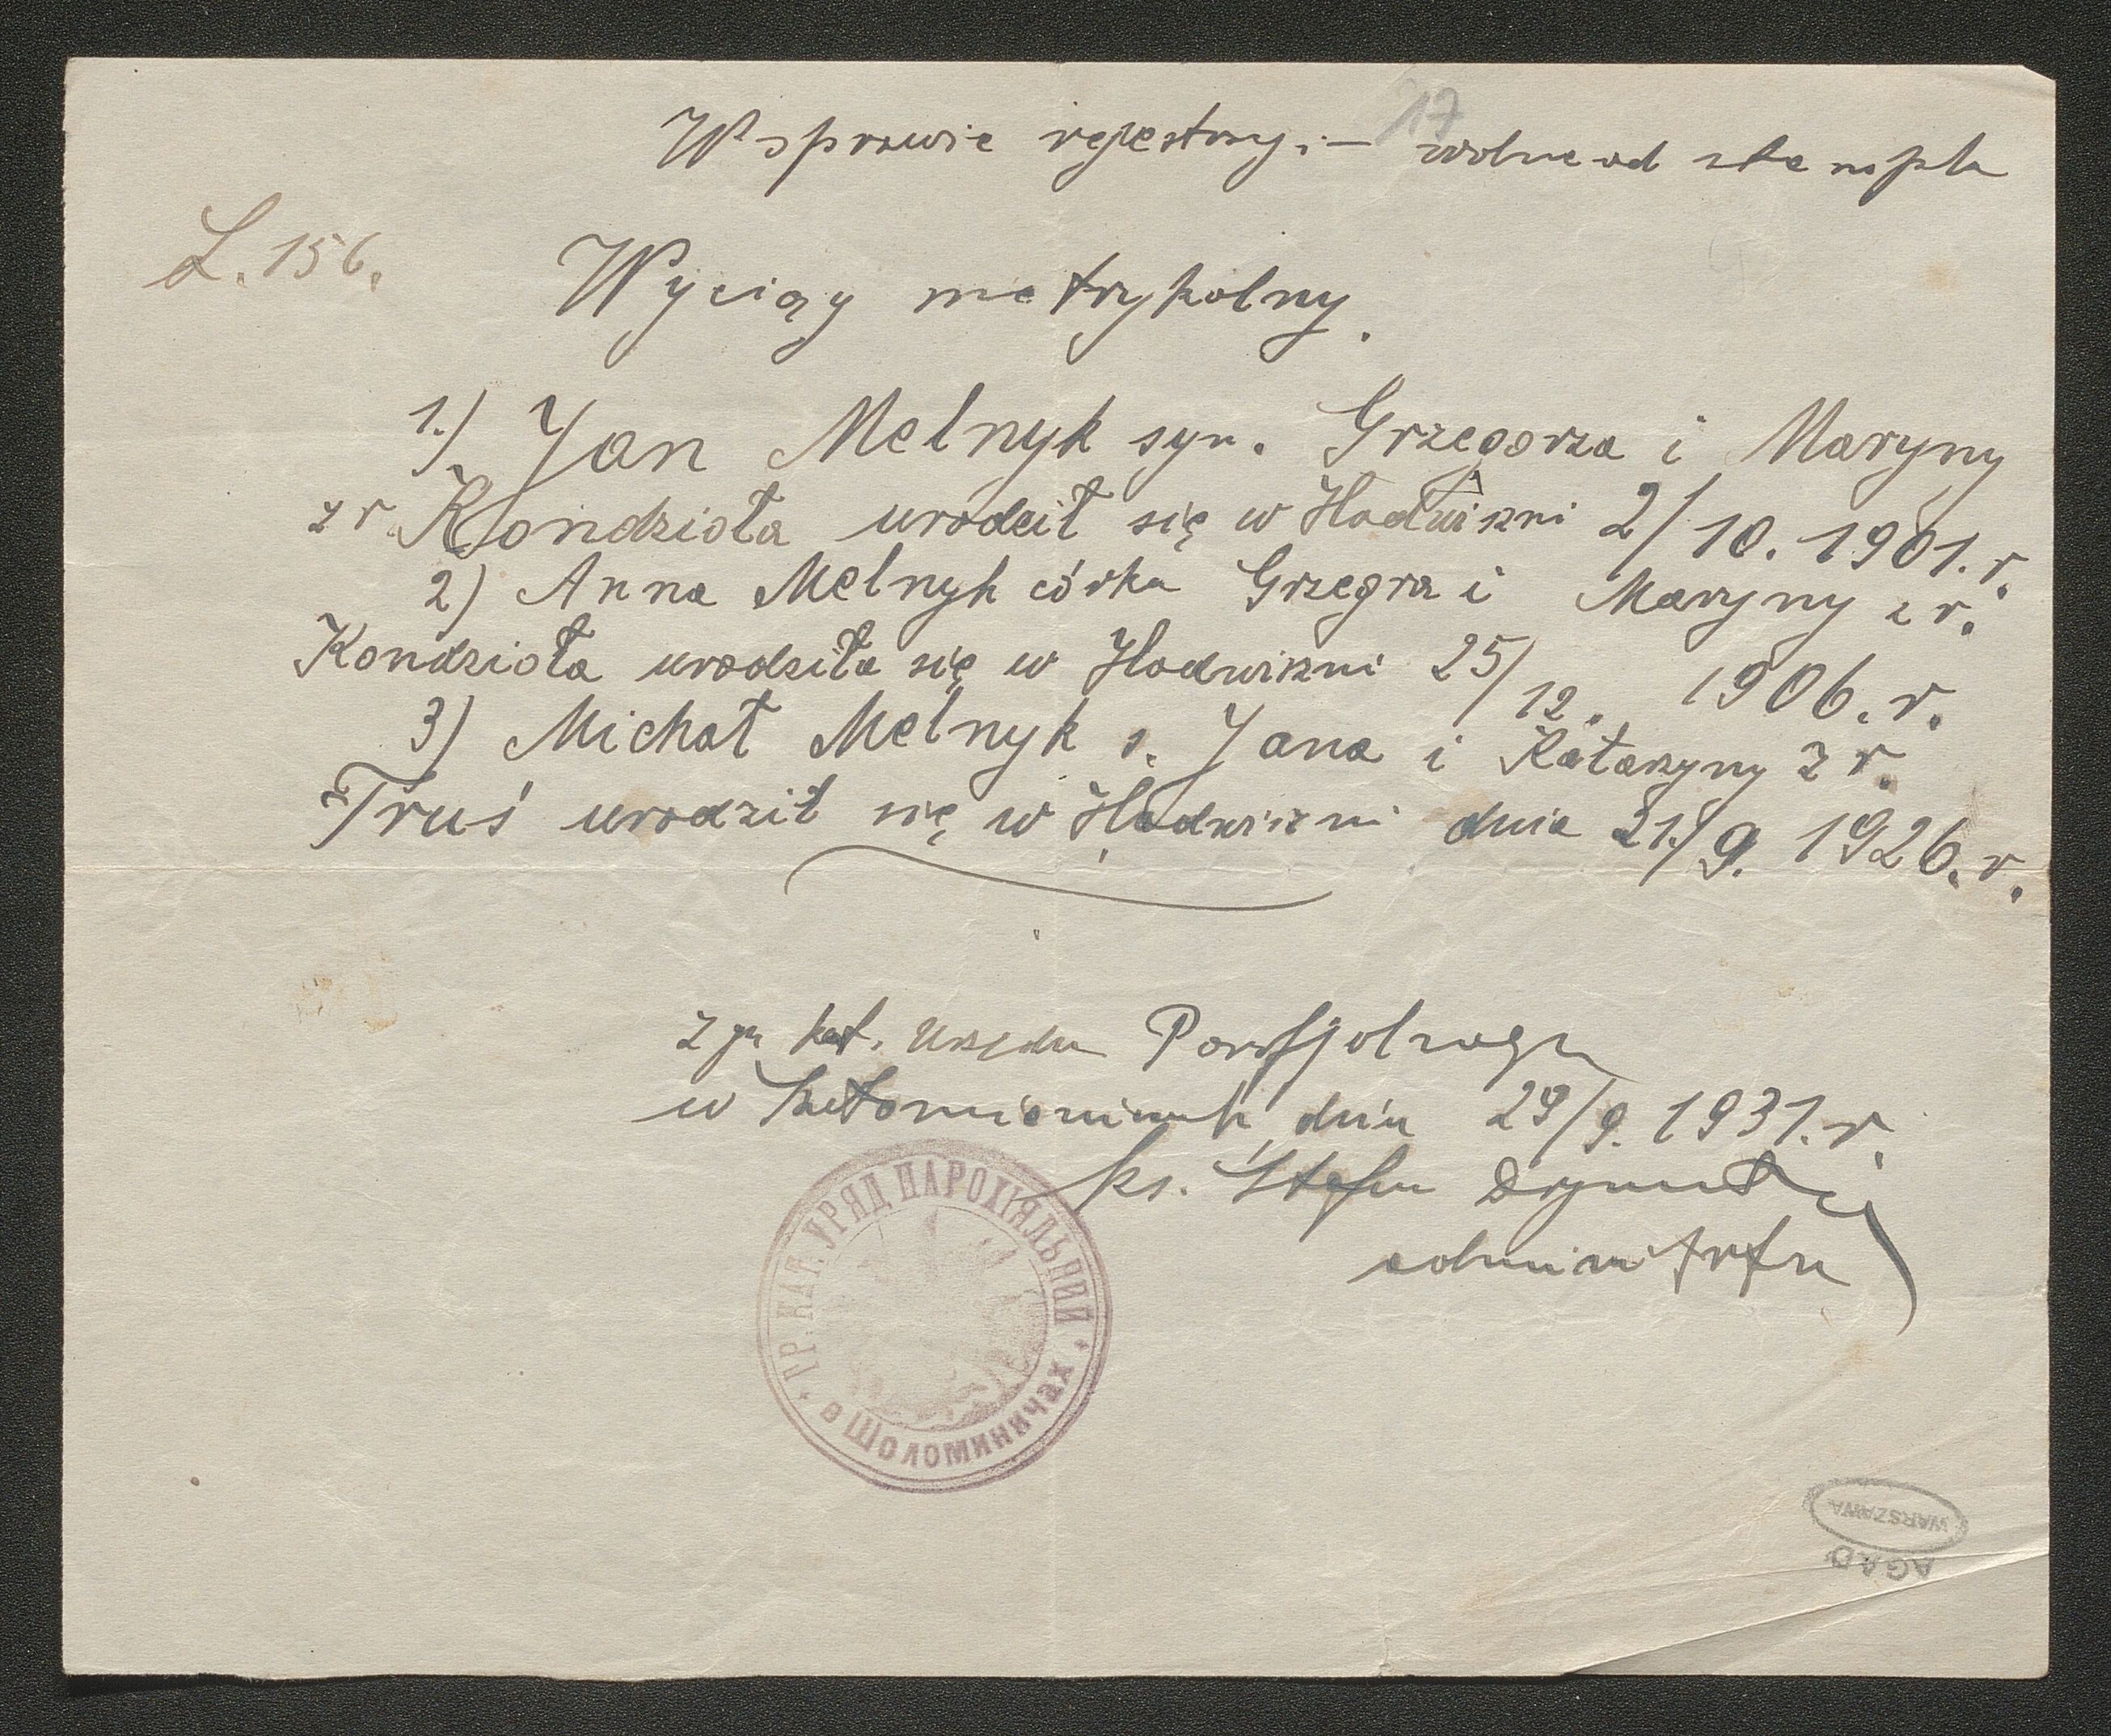 17
W sprawie rejestracyj. – wolne od stempla
L. 156.
Wyciąg metrykalny.
1.) Jan Melnyk syn. Grzegorza i Maryny
z r. Kondzioła urodził się w Hodwiszni 2/10. 1901. r.
2) Anna Melnyk córka Grzegrza i Maryny z r.
Kondzioła urodziła się w Hodwiszni 25/12. 1906. r.
3) Michał Melnyk s. Jana i Katarzyny z r.
Truś urodził się w Hodwiszni dnia 21./9. 1926. r.
z gr. kat. Urzędu Parafjalnego
w dnia 29/9. 1931. r.
ks. Stefan
administrator
ГР. КАТ. УРЯД ПАРОХІЯЛЬНИЙ
в Шоломиничех
WARSZAWA
AGAD